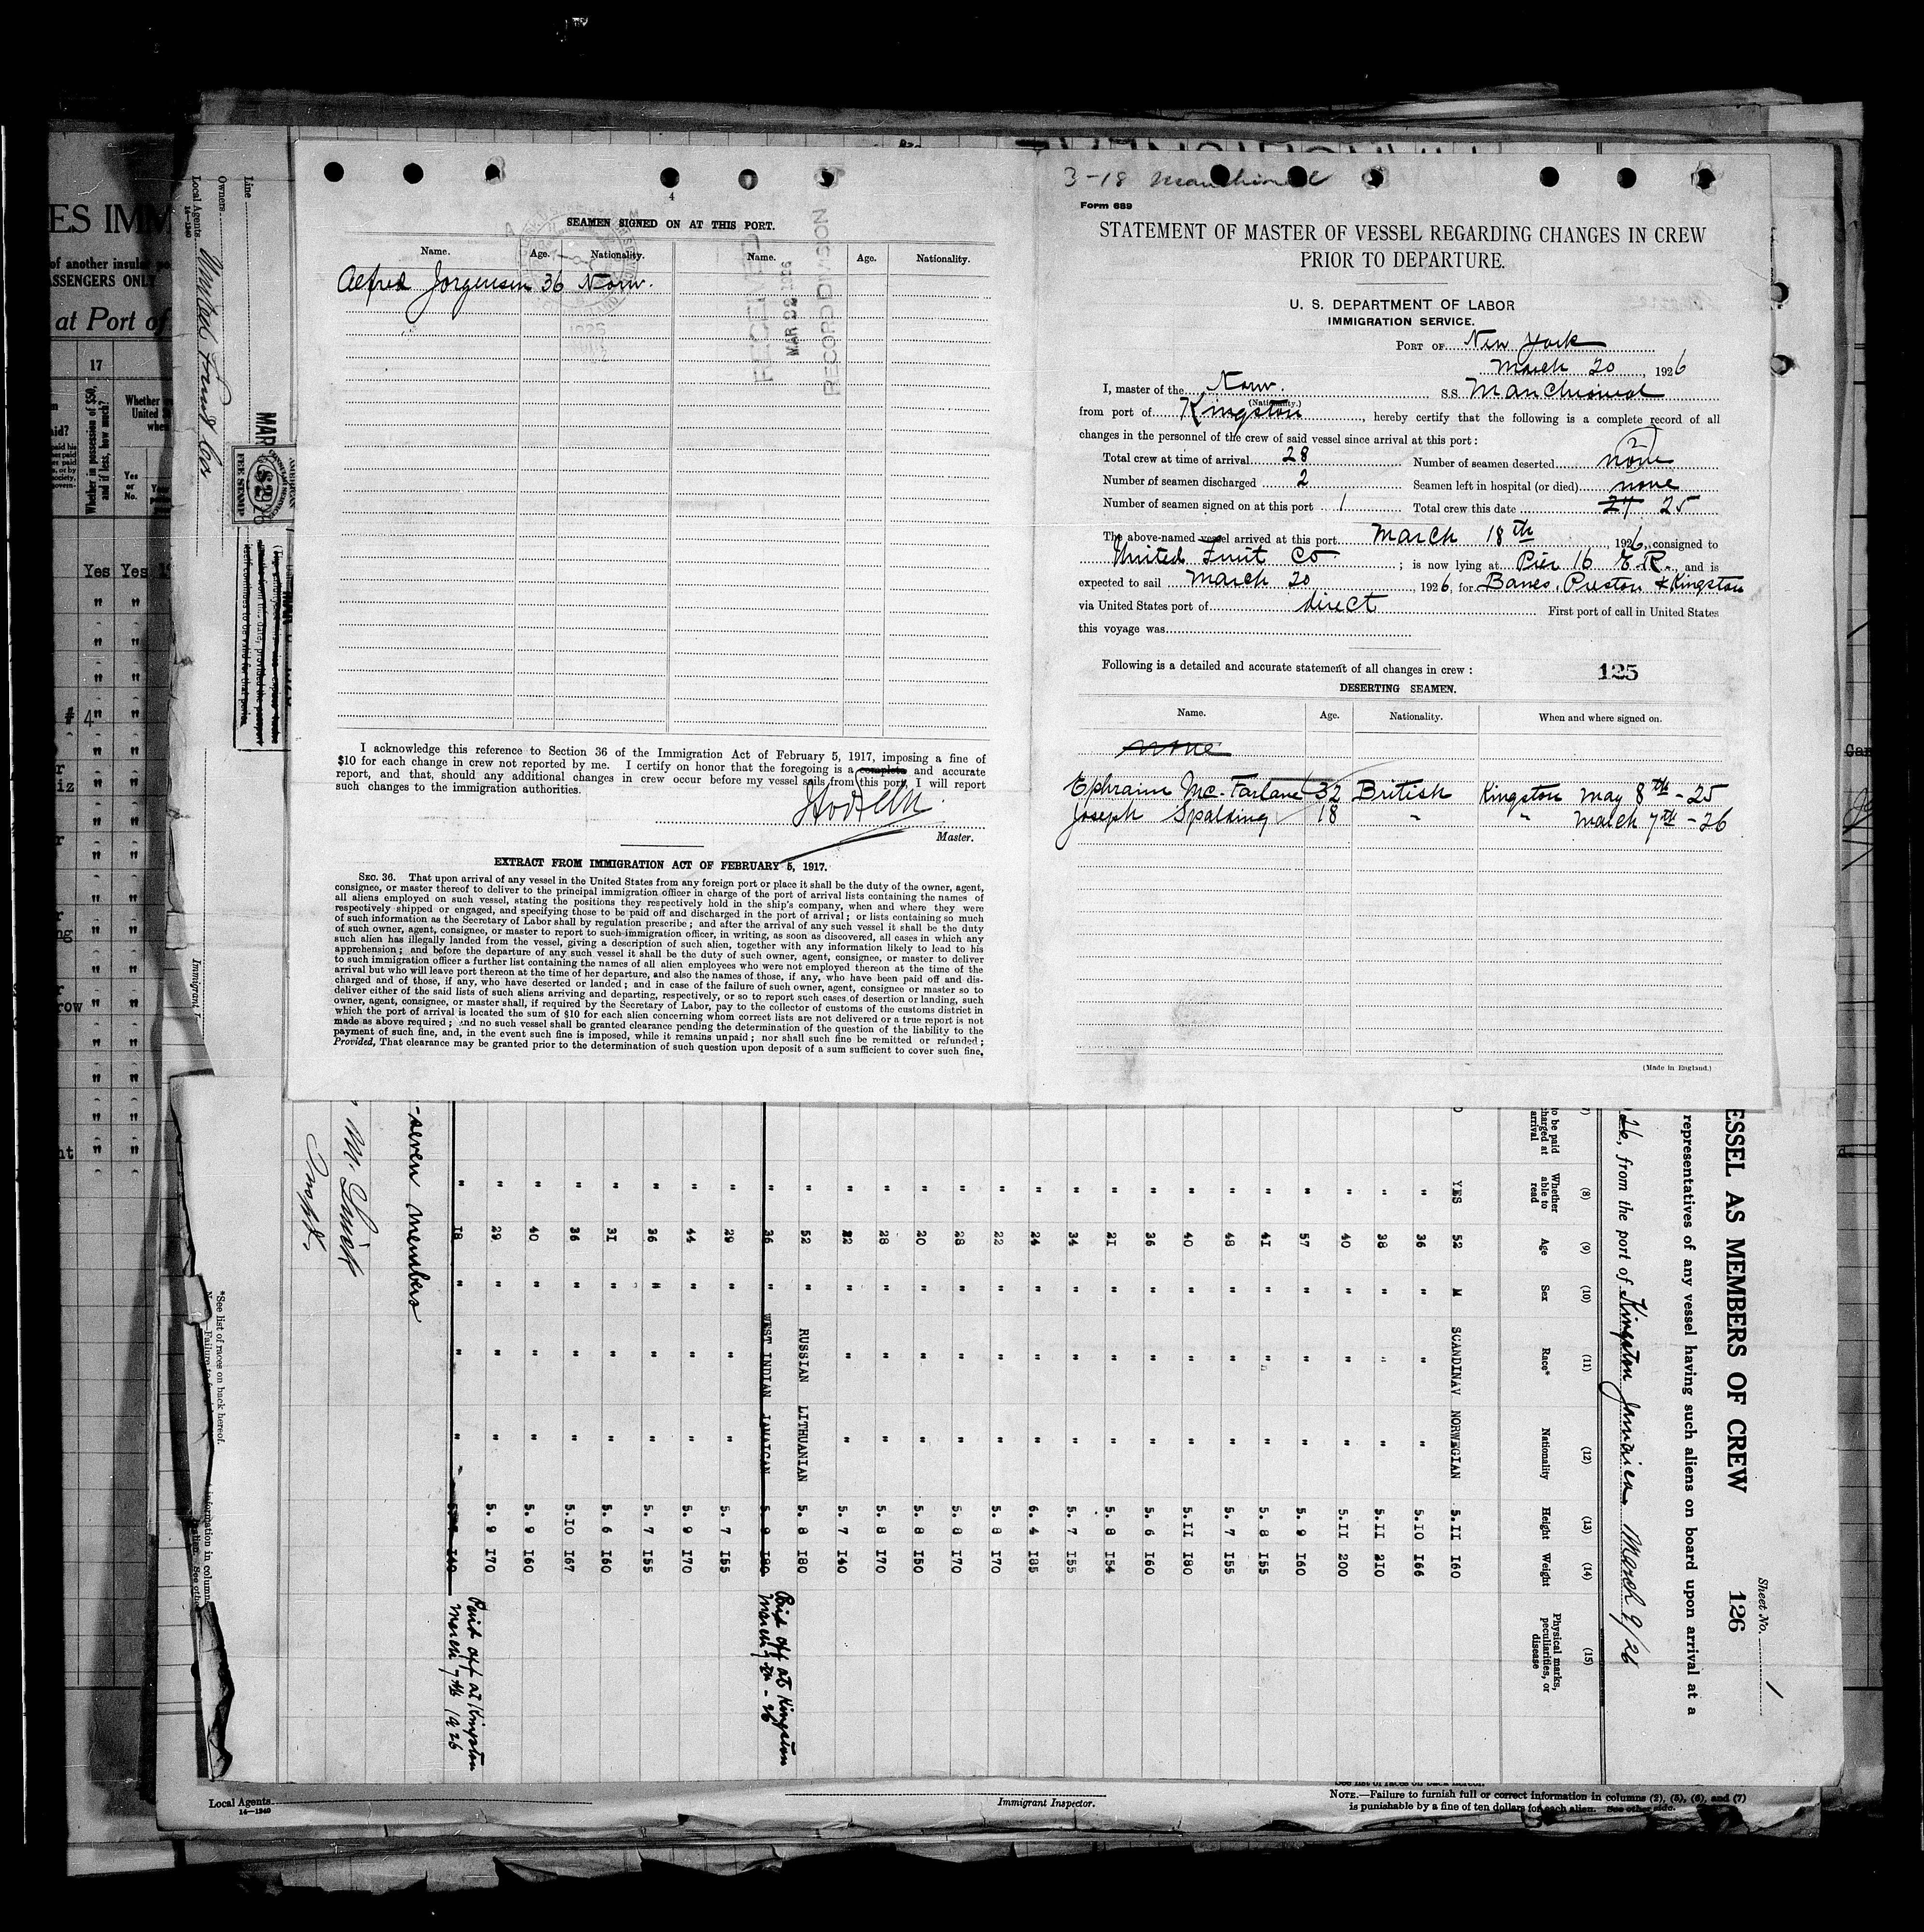 4
SEAMEN SIGNED ON AT THIS PORT.
Name. Age. Nationality. Name. Age. Nationality.
Alfred Jorgensen 36 Norw.
RECEIVED
MAR 22 1926
RECORD DIVISION
I acknowledge this reference to Section 36 of the Immigration Act of February 5, 1917, imposing a fine of
$10 for each change in crew not reported by me. I certify on honor that the foregoing is a complete and accurate
report, and that, should any additional changes in crew occur before my vessel sails from this port, I will report
such changes to the immigration authorities.
Master.
EXTRACT FROM IMMIGRATION ACT OF FEBRUARY 5, 1917.
SEC. 36. That upon arrival of any vessel in the United States from any foreign port or place it shall be the duty of the owner, agent,
consignee, or master thereof to deliver to the principal immigration officer in charge of the port of arrival lists containing the names of
all aliens employed on such vessel, stating the positions they respectively hold in the ship's company, when and where they were
respectively shipped or engaged, and specifying those to be paid off and discharged in the port of arrival; or lists containing so much
of such information as the Secretary of Labor shall by regulation prescribe; and after the arrival of any such vessel it shall be the duty
of such owner, agent, consignee, or master to report to such immigration officer, in writing, as soon as discovered, all cases in which any
such alien has illegally landed from the vessel, giving a description of such alien, together with any information likely to lead to his
apprehension; and before the departure of any such vessel it shall be the duty of such owner, agent, consignee, or master to deliver
to such immigration officer a further list containing the names of all alien employees who were not employed thereon at the time of the
arrival but who will leave port thereon at the time of her departure, and also the names of those, if any, who have been paid off and dis-
charged and of those, if any, who have deserted or landed; and in case of the failure of such owner, agent, consignee or master so to
deliver either of the said lists of such aliens arriving and departing, respectively, or so to report such cases of desertion or landing, such
owner, agent, consignee, or master shall, if required by the Secretary of Labor, pay to the collector of customs of the customs district in
which the port of arrival is located the sum of $10 for each alien concerning whom correct lists are not delivered or a true report is not
made as above required; and no such vessel shall be granted clearance pending the determination of the question of the liability to the
payment of such fine, and, in the event such fine is imposed, while it remains unpaid; nor shall such fine be remitted or refunded;
Provided, That clearance may be granted prior to the determination of such question upon deposit of a sum sufficient to cover such fine,
3-18 Manchioneal
Form 689
STATEMENT OF MASTER OF VESSEL REGARDING CHANGES IN CREW
PRIOR TO DEPARTURE.
U. S. DEPARTMENT OF LABOR
IMMIGRATION SERVICE.
PORT OF New York
March 20, 1926
I, master of the Norw. S.S. Manchioneal
(Nationality.)
from port of Kingston, hereby certify that the following is a complete record of all
changes in the personnel of the crew of said vessel since arrival at this port:
Total crew at time of arrival 28 Number of seamen deserted none 2
Number of seamen discharged 2 Seamen left in hospital (or died) none
Number of seamen signed on at this port 1 Total crew this date 27 25
The above-named vessel arrived at this port March 18th, 1926, consigned to
United Fruit Co; is now lying at Pier 16 E.R., and is
expected to sail March 20, 1926, for Banes, Preston & Kingston
via United States port of direct First port of call in United States
this voyage was
Following is a detailed and accurate statement of all changes in crew:
125
DESERTING SEAMEN.
Name. Age. Nationality. When and where signed on.
none
Ephraim Mc-Farlane 32 British Kingston May 8th-25
Joseph Spalding 18 " " March 7th-26
(Made in England.)
Sheet No. 1
ESSEL AS MEMBERS OF CREW 126
representatives of any vessel having such aliens on board upon arrival at a
26, from the port of Kingston Jamaica, March 9/26
to be paid
charged at
arrival
(8) Whether able to read
(9) Age
(10) Sex
(11) Race*
(12) Nationality
(13) Height
(14) Weight
(15) Physical marks, peculiarities, or disease
YES 52 M SCANDINAV NORWEGIAN 5.11 160
" 36 " " " 5.10 166
" 38 " " " 5.11 210
" 40 " " " 5.11 200
" 57 " " " 5. 9 160
" 41 " " " 5. 8 155
" 48 " " " 5. 7 155
" 40 " " " 5.11 180
" 36 " " " 5. 6 160
" 21 " " " 5. 8 154
" 34 " " " 5. 7 155
" 24 " " " 6. 4 185
" 22 " " " 5. 8 170
" 28 " " " 5. 8 170
" 20 " " " 5. 8 150
" 28 " " " 5. 8 170
" 22 " " " 5. 7 140
" 52 " RUSSIAN LITHUANIAN 5. 8 180
" 36 " WEST INDIAN JAMAICAN 5. 9 180 Paid off at Kingston
March 7th-26
" 29 " " " 5. 7 155
" 44 " " " 5. 9 170
" 36 " " " 5. 7 155
" 31 " " " 5. 6 160
" 36 " " " 5.10 167
" 40 " " " 5. 9 160
" 29 " " " 5. 9 170
" 18 " " " 140 Paid off at Kingston
March 7th 1926
-seven members
*See list of races on back hereof.
Immigrant I
Line
Owners
Local Agents United Fruit Co
14-1240
MAR
FEE STAMP
$2
ES IMM
of another insular po
ASSENGERS ONLY
at Port of
17
Whether in possession of $50, and if less, how much?
Yes
or
No.
Yes Yes
Local Agents
14-1240
Immigrant Inspector.
See list of races on back hereof.
NOTE.—Failure to furnish full or correct information in columns (2), (5), (6), and (7)
is punishable by a fine of ten dollars for each alien. See other side.